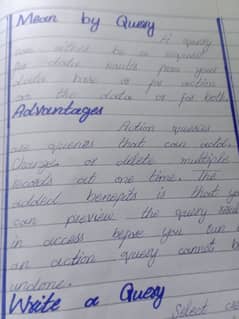 Mean by Query
A query
can either be a request
for data results from your
data base or for action
on the data or for both.
Advantages
Action queries
are queries that can add,
change, or delete multiple
records at one time. The
added benefits is that you
can preview the query
in access before you run
an action query cannot be
undone.
Write a Query
Select